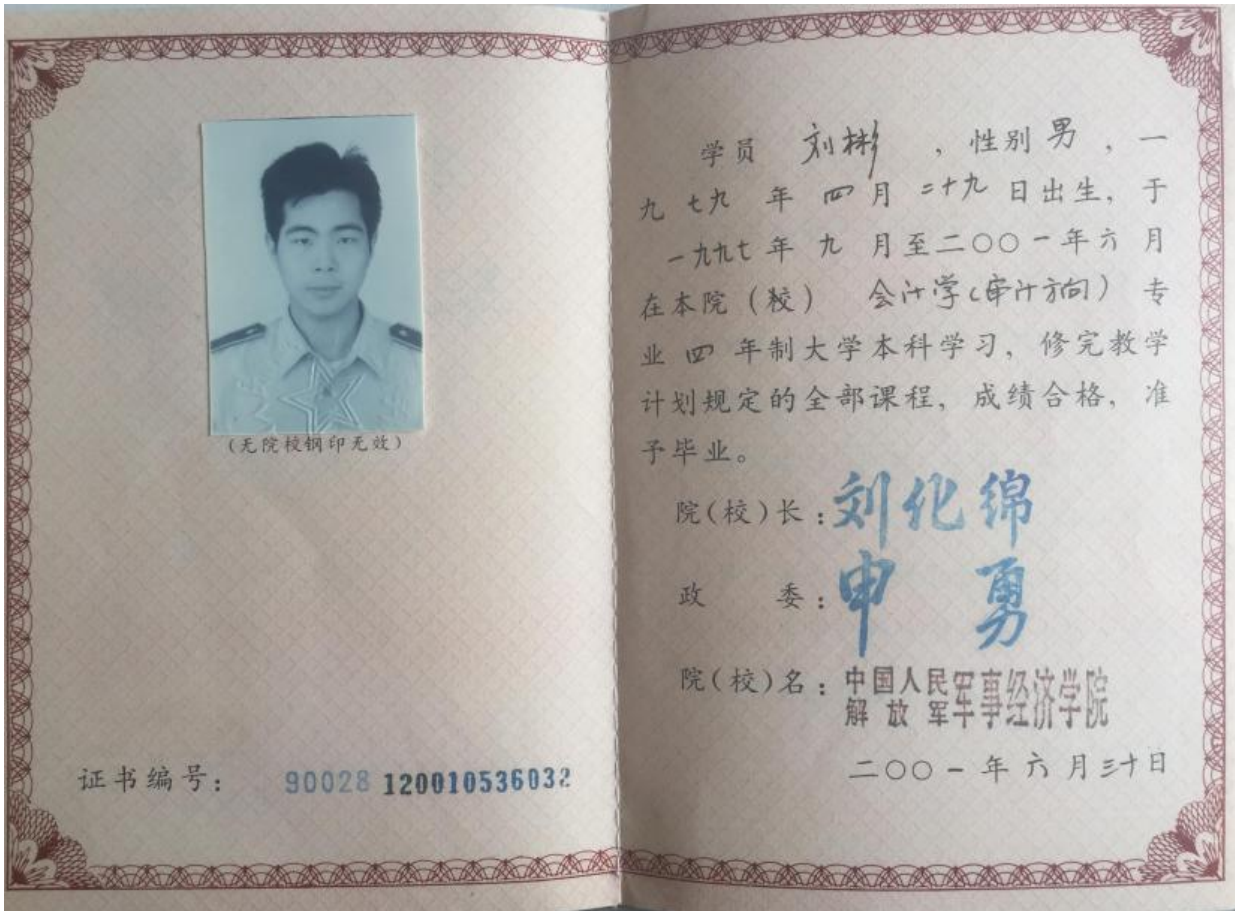 (无院校钢印无效)
证书编号: 90028 120010536032
学员 刘彬 , 性别 男 , 一
九 七九 年 四 月 二十九 日出生, 于
一九九七 年 九 月至二〇〇一年六 月
在本院(校) 会计学(审计方向) 专
业 四 年制大学本科学习, 修完教学
计划规定的全部课程, 成绩合格, 准
予毕业。
院(校)长: 刘化绵
政 委: 申 勇
院(校)名: 中国人民解放军军事经济学院
二〇〇一年六月三十日